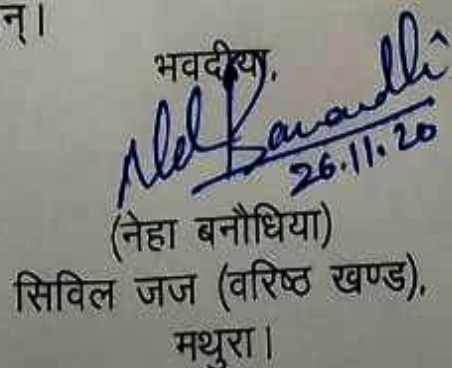 न्।
भवदीया,
26.11.20
(नेहा बनौधिया)
सिविल जज (वरिष्ठ खण्ड),
मथुरा।